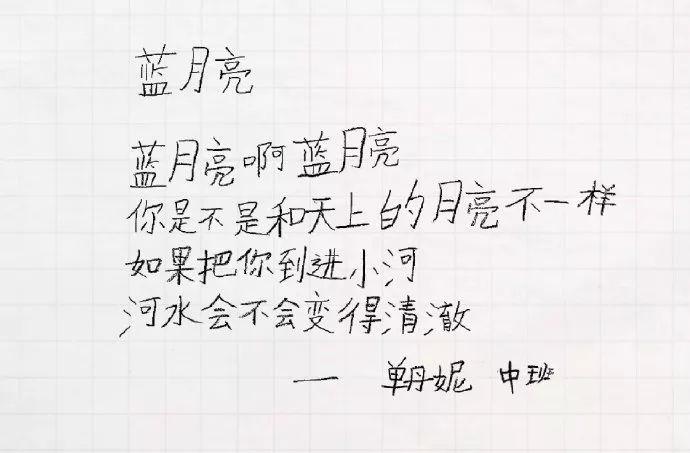 蓝月亮
蓝月亮啊蓝月亮
你是不是和天上的月亮不一样
如果把你到进小河
河水会不会变得清澈
— 单丹妮 中班